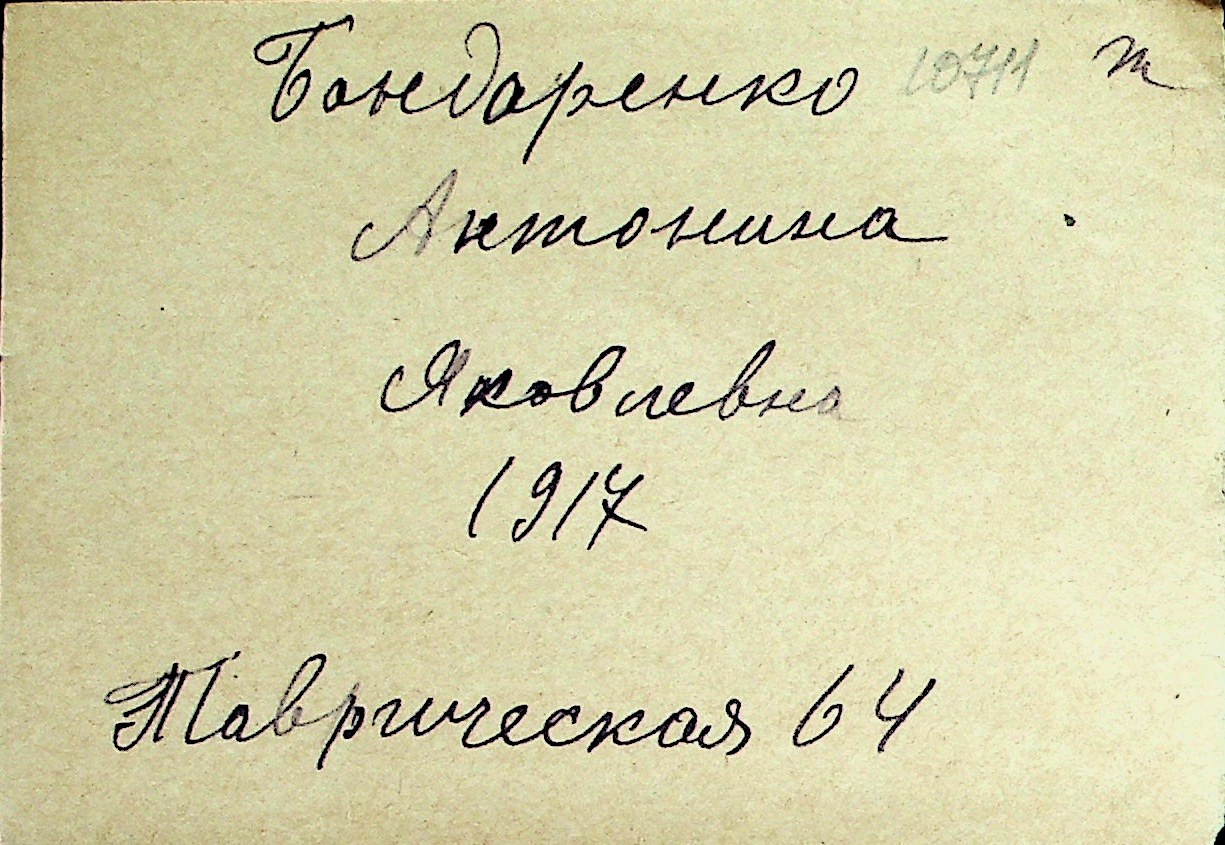 Бондаренко 10711 т
Антонина
Яковлевна
1917
Таврическая 64